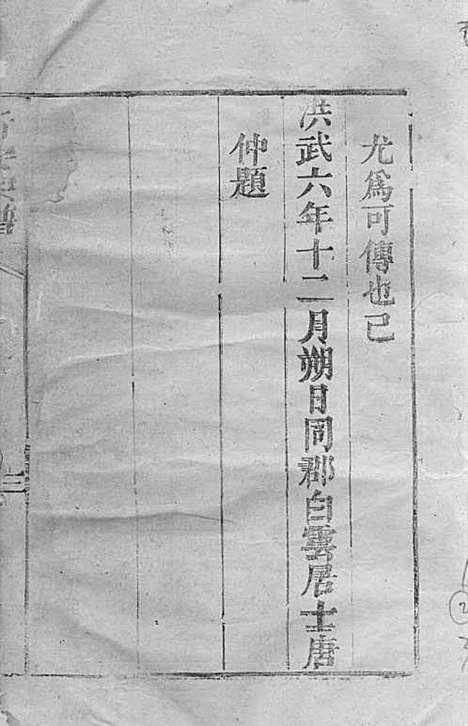 尤爲可傳也已
洪武六年十二月朔日同郡白雲居士唐
仲題
三